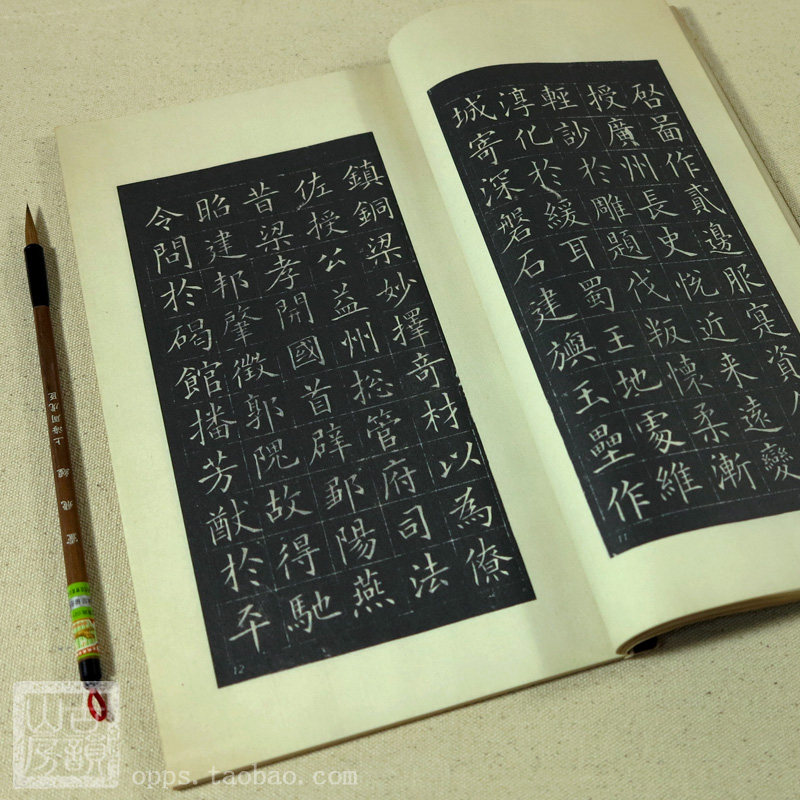 啓畐作貳邊服寔資
授廣州長史悅近来遠變
輕訬於雕題伐叛懷柔漸
淳化於緩耳蜀王地處維
城寄深磐石建旟玉壘作
11
鎮銅梁妙擇奇材以為僚
佐授公益州捴管府司法
昔梁孝開國首辟鄒陽燕
昭建邦肇徵郭隗故得馳
令問於碣館播芳猷於平
12
上海周虎臣
靈飛經
古韻山房
opps.taobao.com